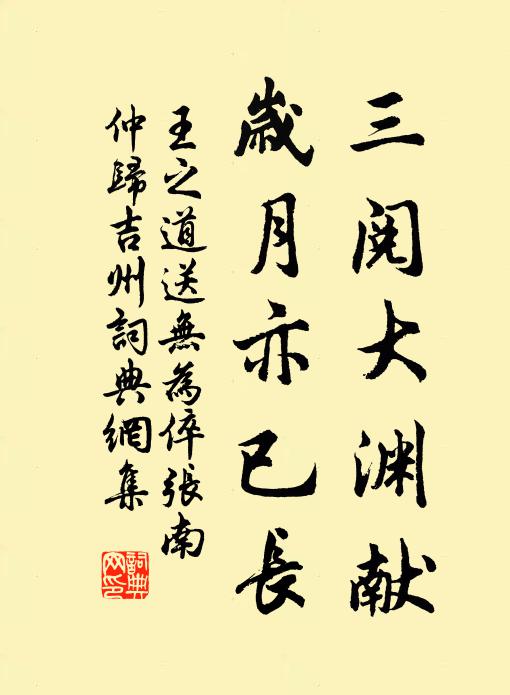 三阅大渊献
歲月亦已長
王之道送無為倅張南
仲歸吉州詞典網集
詞典
网印